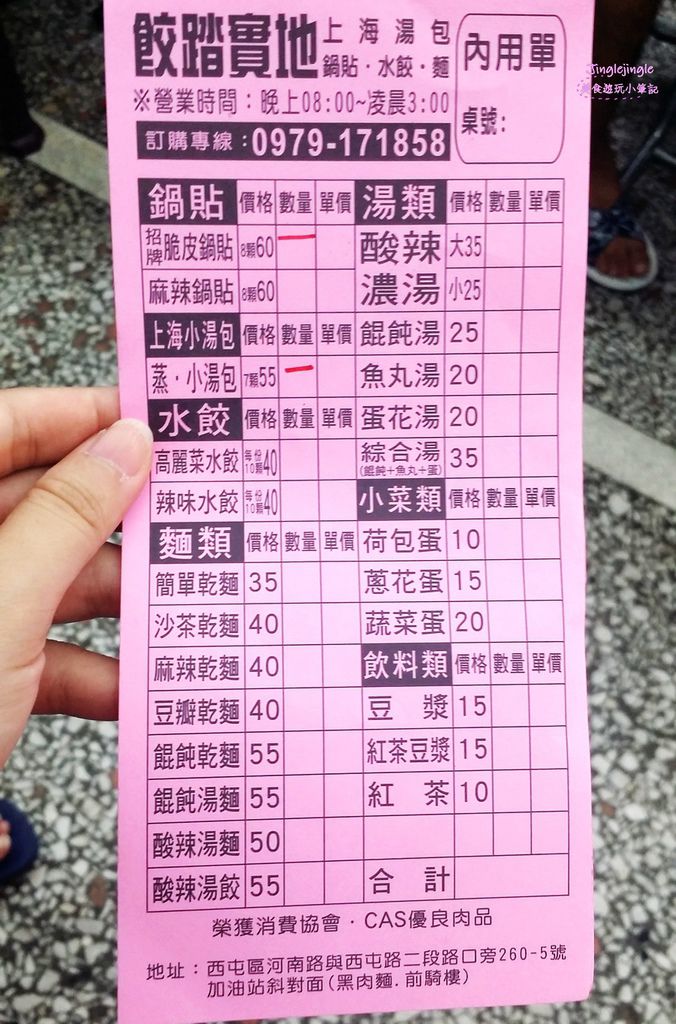 餃踏實地
上海湯包
鍋貼・水餃・麵
※營業時間：晚上08:00~凌晨3:00
訂購專線：0979-171858
內用單
桌號：
Jinglejingle
食遊玩小筆記
鍋貼 價格 數量 單價
招牌脆皮鍋貼 8顆60 一
麻辣鍋貼 8顆60
上海小湯包 價格 數量 單價
蒸・小湯包 7顆55 一
水餃 價格 數量 單價
高麗菜水餃 每份10顆40
辣味水餃 每份10顆40
麵類 價格 數量 單價
簡單乾麵 35
沙茶乾麵 40
麻辣乾麵 40
豆瓣乾麵 40
餛飩乾麵 55
餛飩湯麵 55
酸辣湯麵 50
酸辣湯餃 55
湯類 價格 數量 單價
酸辣濃湯 大35
小25
餛飩湯 25
魚丸湯 20
蛋花湯 20
綜合湯 35
(餛飩+魚丸+蛋)
小菜類 價格 數量 單價
荷包蛋 10
蔥花蛋 15
蔬菜蛋 20
飲料類 價格 數量 單價
豆漿 15
紅茶豆漿 15
紅茶 10
合計
榮獲消費協會・CAS優良肉品
地址：西屯區河南路與西屯路二段路口旁260-5號
加油站斜對面(黑肉麵.前騎樓)